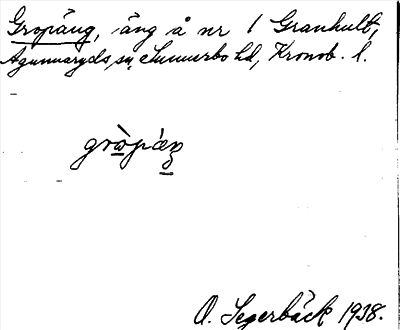 Gropäng, äng å nr 1 Granhult,
Agunnaryds sn, Sunnerbo hd, Kronob. l.
gròpǽŋ
O. Segerbäck 1938.